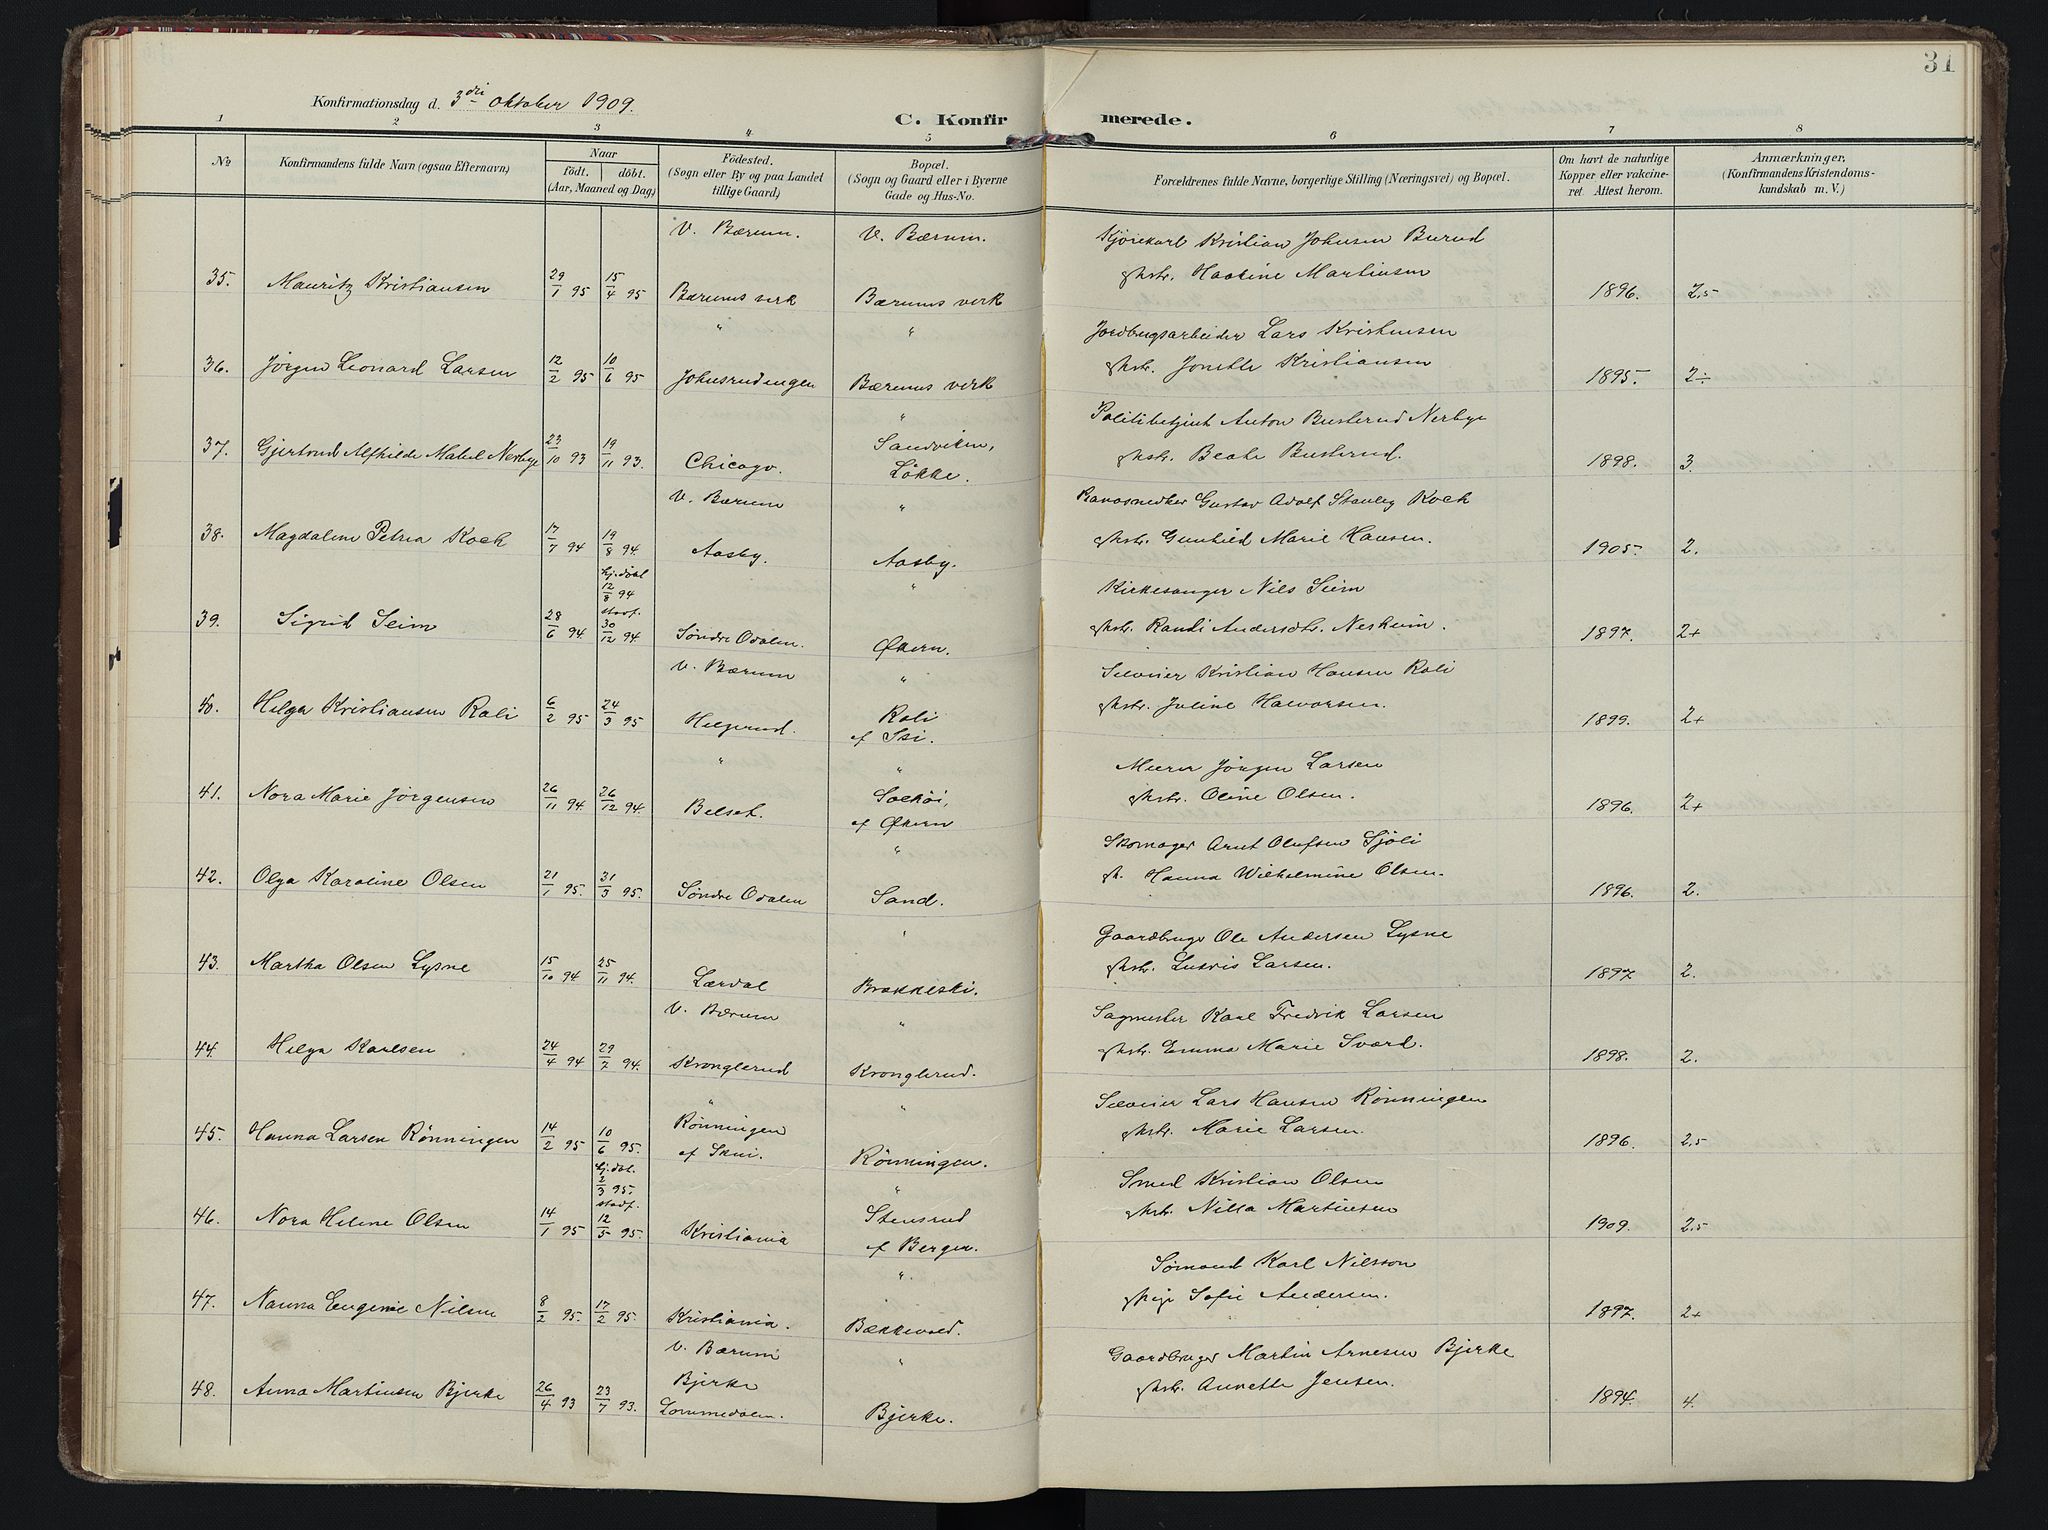 31
Konfirmationsdag d. 3die oktober 1909.
C. Konfirmerede.
1 2 3 4 5 6 7 8
No.
Konfirmandens fulde Navn (ogsaa Efternavn)
Naar
födt. döbt.
(Aar, Maaned og Dag)
Födested.
(Sogn eller By og paa Landet
tillige Gaard)
Bopæl.
(Sogn og Gaard eller i Byerne
Gade og Hus-No.
Forældrenes fulde Navne, borgerlige Stilling (Næringsvei) og Bopæl.
Om havt de naturlige
Kopper eller vakcine-
ret. Attest herom.
Anmærkninger,
(Konfirmandens Kristendoms-
kundskab m. V.)
V. Bærum. V. Bærum. Kjörekarl Kristian Johnsen Burud
35. Mauritz Kristiansen 29/1 95 15/4 95 Bærums verk Bærums verk Hstr. Haakine Martinsen 1896. 2,5
" " Jordbrugsarbeider Lars Kristensen
36. Jörgen Leonard Larsen 12/2 95 10/6 95 Johnsrudengen Bærums verk Hstr. Jonette Kristiansen 1895. 2÷
" Politibetjent Anton Busterud Nerbye
37. Gjertrud Alfhilde Mabel Nerbye 23/10 93 19/11 93. Chicago. Sandviken, Løkke. Hstr. Beate Busterud. 1898. 3.
V. Bærum " Gustav Adolf Stanley Koch
38. Magdalene Petrea Koch 17/7 94 19/8 94. Aasby. Aasby. Hstr. Gunhild Marie Hansen. 1905. 2.
hj. döbt 12/8 94 stadf. " Kirkesanger Nils Seim
39. Sigrid Seim 28/6 94. 30/12 94 Søndre Odalen. Økern. Hstr. Randi Andersdtr. Nesheim. 1897. 2+
V. Bærum " Kristian Hansen Roli
40. Helga Kristiansen Roli 6/2 95 24/3 95 Helgerud. Roli af Ski. Hstr. Juline Halvorsen. 1899. 2+
" " Murer Jörgen Larsen
41. Nora Marie Jörgensen 26/11 94. 26/12 94. Belset. Solhöi, af Økern Hstr. Oline Olsen. 1896. 2+
" Skomager Arnt Olufsen Sjöli
42. Olga Karoline Olsen 21/1 95. 31/3 95. Søndre Odalen Sand. h. Hanna Wilhelmine Olsen. 1896. 2.
" Gaardbruger Ole Andersen Lysne
43. Martha Olsen Lysne 15/10 94 25/11 94. Lærdal Brækkeski. Hstr. Larsen. 1897 2.
V. Bærum " Sagmester Karl Fredrik Larsen
44. Helga Karlsen 24/4 94 29/7 94. Kronglerud Kronglerud. Hstr. Emma Marie Sværd. 1898. 2.
" " Lars Hansen Rönningen
45. Hanna Larsen Rönningen 14/2 95 10/6 95. Rønningen af Skui. Rønningen. Hstr. Marie Larsen. 1896. 2,5
hj. döbt. 2/3 95. stadf. " Smed Kristian Olsen
46. Nora Helene Olsen 14/1 95 12/5 95. Kristiania Stensrud af Berger. Hstr. Nilla Martinsen 1909. 2,5
". Sømand Karl Nilsson
47. Nanna Eugenie Nilsen 8/2 95. 17/2 95. Kristiania. Bækkevold. Pige Sofie Andersen. 1897. 2+
V. Bærum " Gaardbruger Martin Arnesen Bjerke
48. Anna Martinsen Bjerke 26/4 93 23/7 93. Bjerke Lommedalen. Bjerke. Hstr. Annette Jensen. 1894. 4.